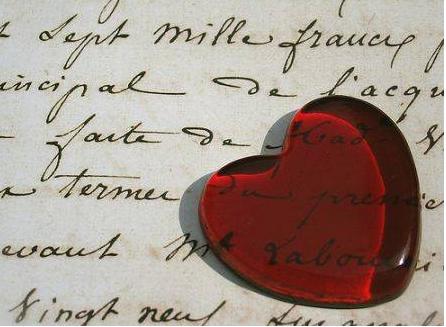 t Sept mille francs p
incipal de l'acqu
faite de Mad V
n termes du premie
evant Mt Labou
Vingt neuf